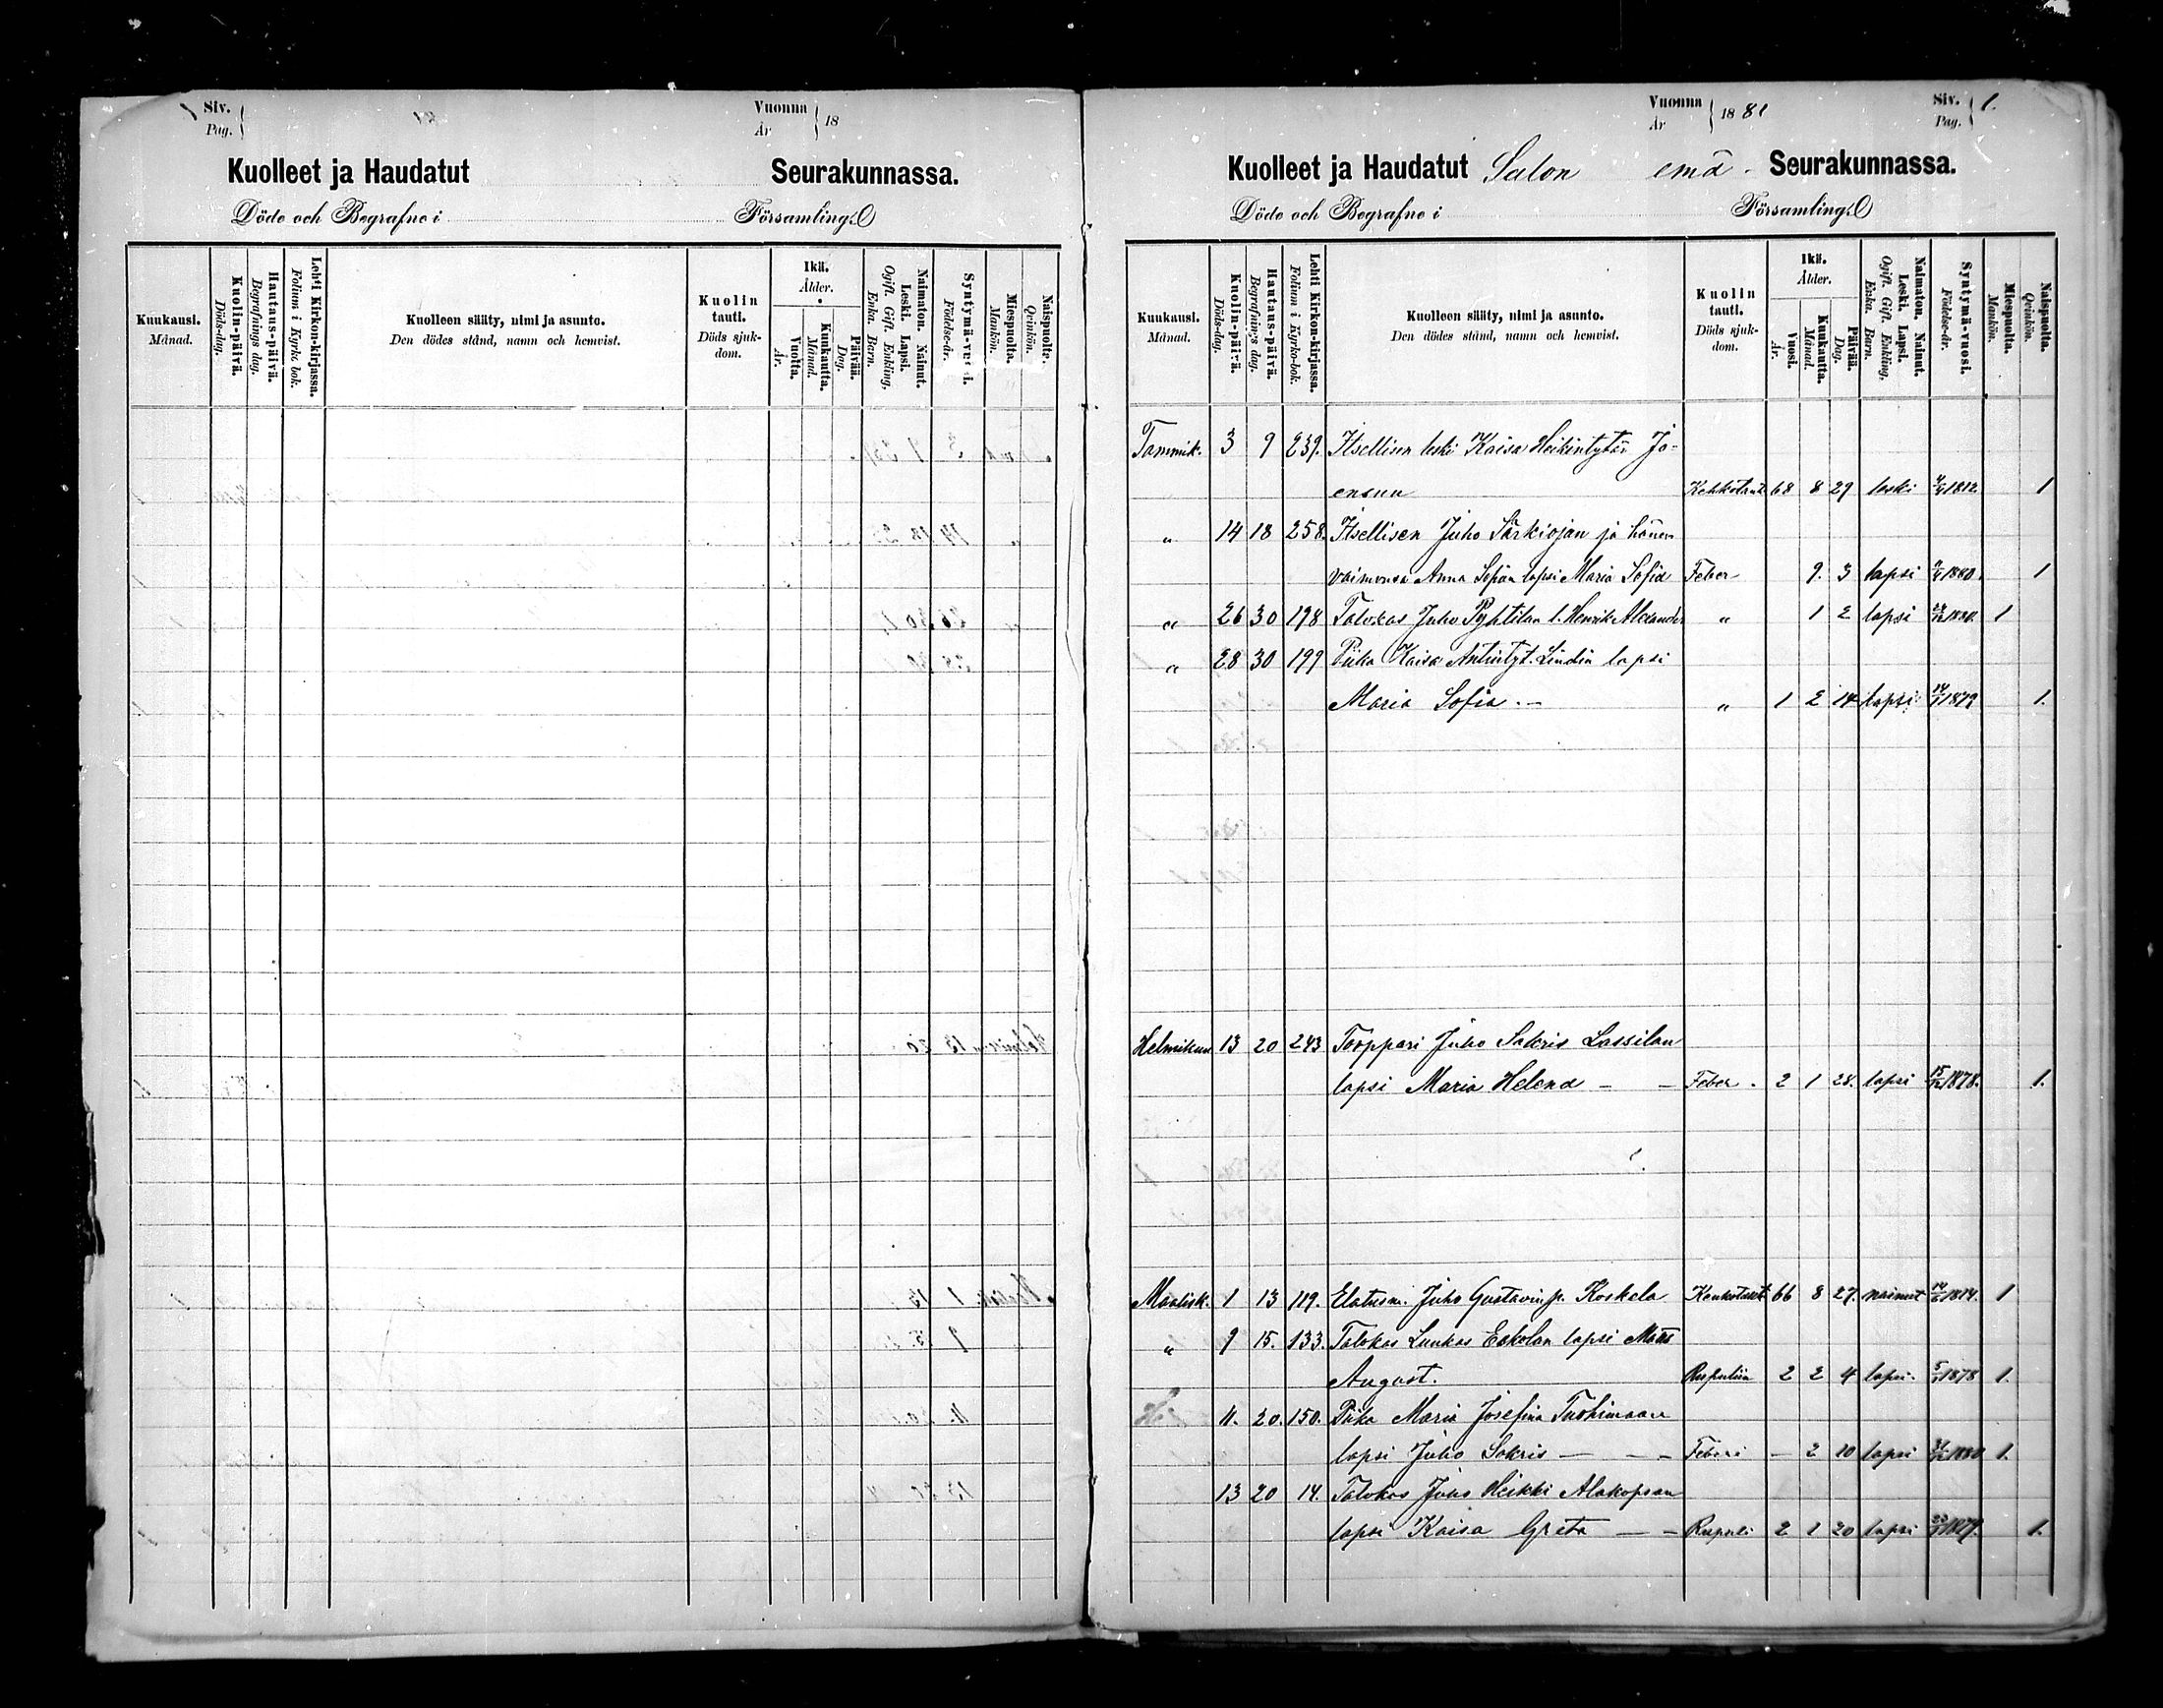 Siv.
Pag.
Vuonna
År
18
Kuolleet ja Haudatut Seurakunnassa.
Döde och Begrafne i Församling.
Kuukausi.
Månad.
Kuolin-päivä.
Döds-dag.
Hautaus-päivä.
Begrafnings dag.
Lehti Kirkon-kirjassa.
Folium i Kyrko-bok.
Kuolleen sääty, nimi ja asunto.
Den dödes stånd, namn och hemvist.
Kuolin
tauti.
Döds sjuk-
dom.
Ikä.
Ålder.
Vuotta.
År.
Kuukautta.
Månad.
Päivää.
Dag.
Naimaton. Nainut.
Leski. Lapsi.
Ogift. Gift. Enkling,
Enka. Barn.
Syntymä-vuosi.
Födelse-år.
Miespuolta.
Mankön.
Naispuolta.
Qvinkön.
Vuonna
År
1881
Siv.
Pag.
1.
Kuolleet ja Haudatut Salon emä- Seurakunnassa.
Döde och Begrafne i Församling.
Kuukausi.
Månad.
Kuolin-päivä.
Döds-dag.
Hautaus-päivä.
Begrafnings dag.
Lehti Kirkon-kirjassa.
Folium i Kyrko-bok.
Kuolleen sääty, nimi ja asunto.
Den dödes stånd, namn och hemvist.
Kuolin
tauti.
Döds sjuk-
dom.
Ikä.
Ålder.
Vuosi.
År.
Kuukautta.
Månad.
Päivää.
Dag.
Naimaton. Nainut.
Leski. Lapsi.
Ogift. Gift. Enkling,
Enka. Barn.
Syntymä-vuosi.
Födelse-år.
Miespuolta.
Mankön.
Naispuolta.
Qvinkön.
Tammik. 3 9 239. Itsellisen leski Kaisa Heikintytär Jo-
ensuu 68 8 29 leski 1812. 1
" 14 18 258. Itsellisen Juho Särkiojan ja hänen
vaimonsa Anna Sofian lapsi Maria Sofia Feber 9. 3 lapsi 1880. 1
" 26 30 198 Talokas Juho Pyhtilan l. Henrik Alexander " 1 2 lapsi 1880. 1
" 28 30 199 Piika Kaisa Antintyt. Lindin lapsi
Maria Sofia.— " 1 2 14 lapsi 1879 1.
Helmikuu 13 20 243 Torppari Juho Sakris Lassilan
lapsi Maria Helena — — Feber. 2 1 28. lapsi 15/12 1878. 1.
Maalisk. 1 13 119. Elatusm. Juho Gustavinp. Koskela 66 8 27. nainut 1814. 1
" 9 15. 133. Talokas Luukas Eskolan lapsi Matts
August. 2 2 4 lapsi. 1878 1.
11. 20. 150. Piika Maria Josefina Tuohimaan
lapsi Juho Sakris — — — Feberi — 2 10 lapsi 1880 1.
13 20 14. Talokas Juho Heikki Alakopsan
lapsi Kaisa Greta — — Rupuli 2 1 20 lapsi 1879. 1.